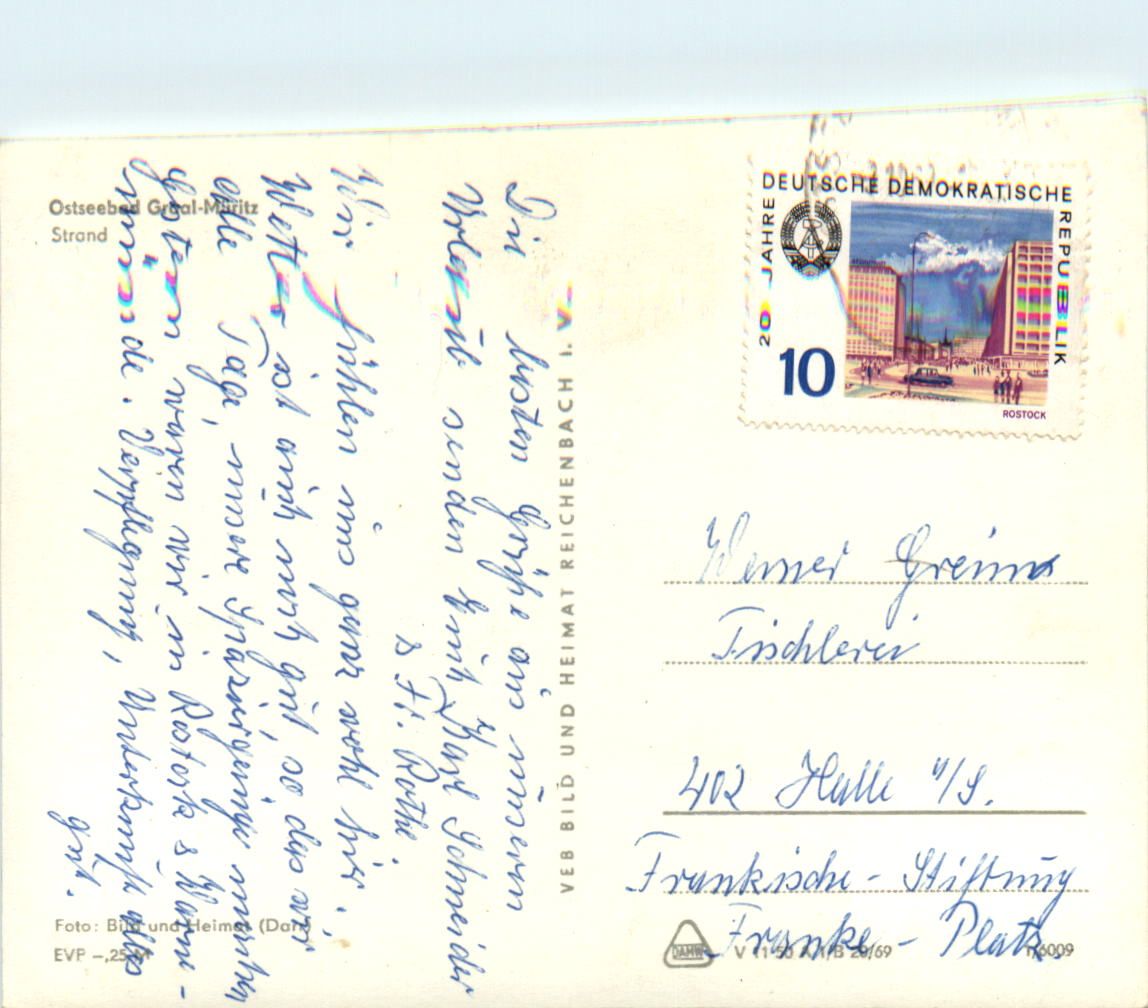 Ostseebad Graal-Müritz
Strand
Die besten Grüße aus unserem
Urlaub senden Euch Karl Schneider
& Fr. Rothe.
Wir fühlen uns ganz wohl hier.
Wetter ist auch noch gut, so das wir
alle Tage, unsere Spaziergänge machen
Gestern waren wir in Rostock & Warne-
münde. Verpflegung, Unterkunft alles
gut.
Foto: Bild und Heimat (Darr)
EVP -,25 M
VEB BILD UND HEIMAT REICHENBACH I. V.
DEUTSCHE DEMOKRATISCHE
REPUBLIK
20 JAHRE
10
ROSTOCK
Werner
Tischlerei
402 Halle a/S.
Frankische - Stiftung
Franke - Platz
DAMW
V 11 50 A 1/B 29/69
1/6009